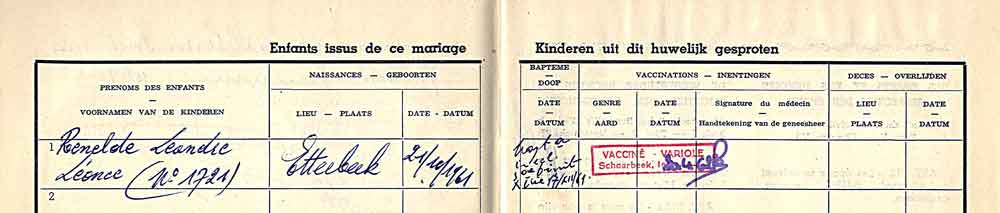 Enfants issus de ce mariage
Kinderen uit dit huwelijk gesproten
PRENOMS DES ENFANTS
—
VOORNAMEN VAN DE KINDEREN
NAISSANCES — GEBOORTEN
LIEU — PLAATS
DATE - DATUM
BAPTEME
—
DOOP
DATE
—
DATUM
VACCINATIONS — INENTINGEN
GENRE
—
AARD
DATE
—
DATUM
Signature du médecin
—
Handtekening van de geneesheer
DECES — OVERLIJDEN
LIEU
—
PLAATS
DATE
—
DATUM
1 Renelde Léondie
Léonce (No 1721)
Etterbeek
21/10/1961
VACCINÉ - VARIOLE
Schaarbeek, le
17/XII/61
2